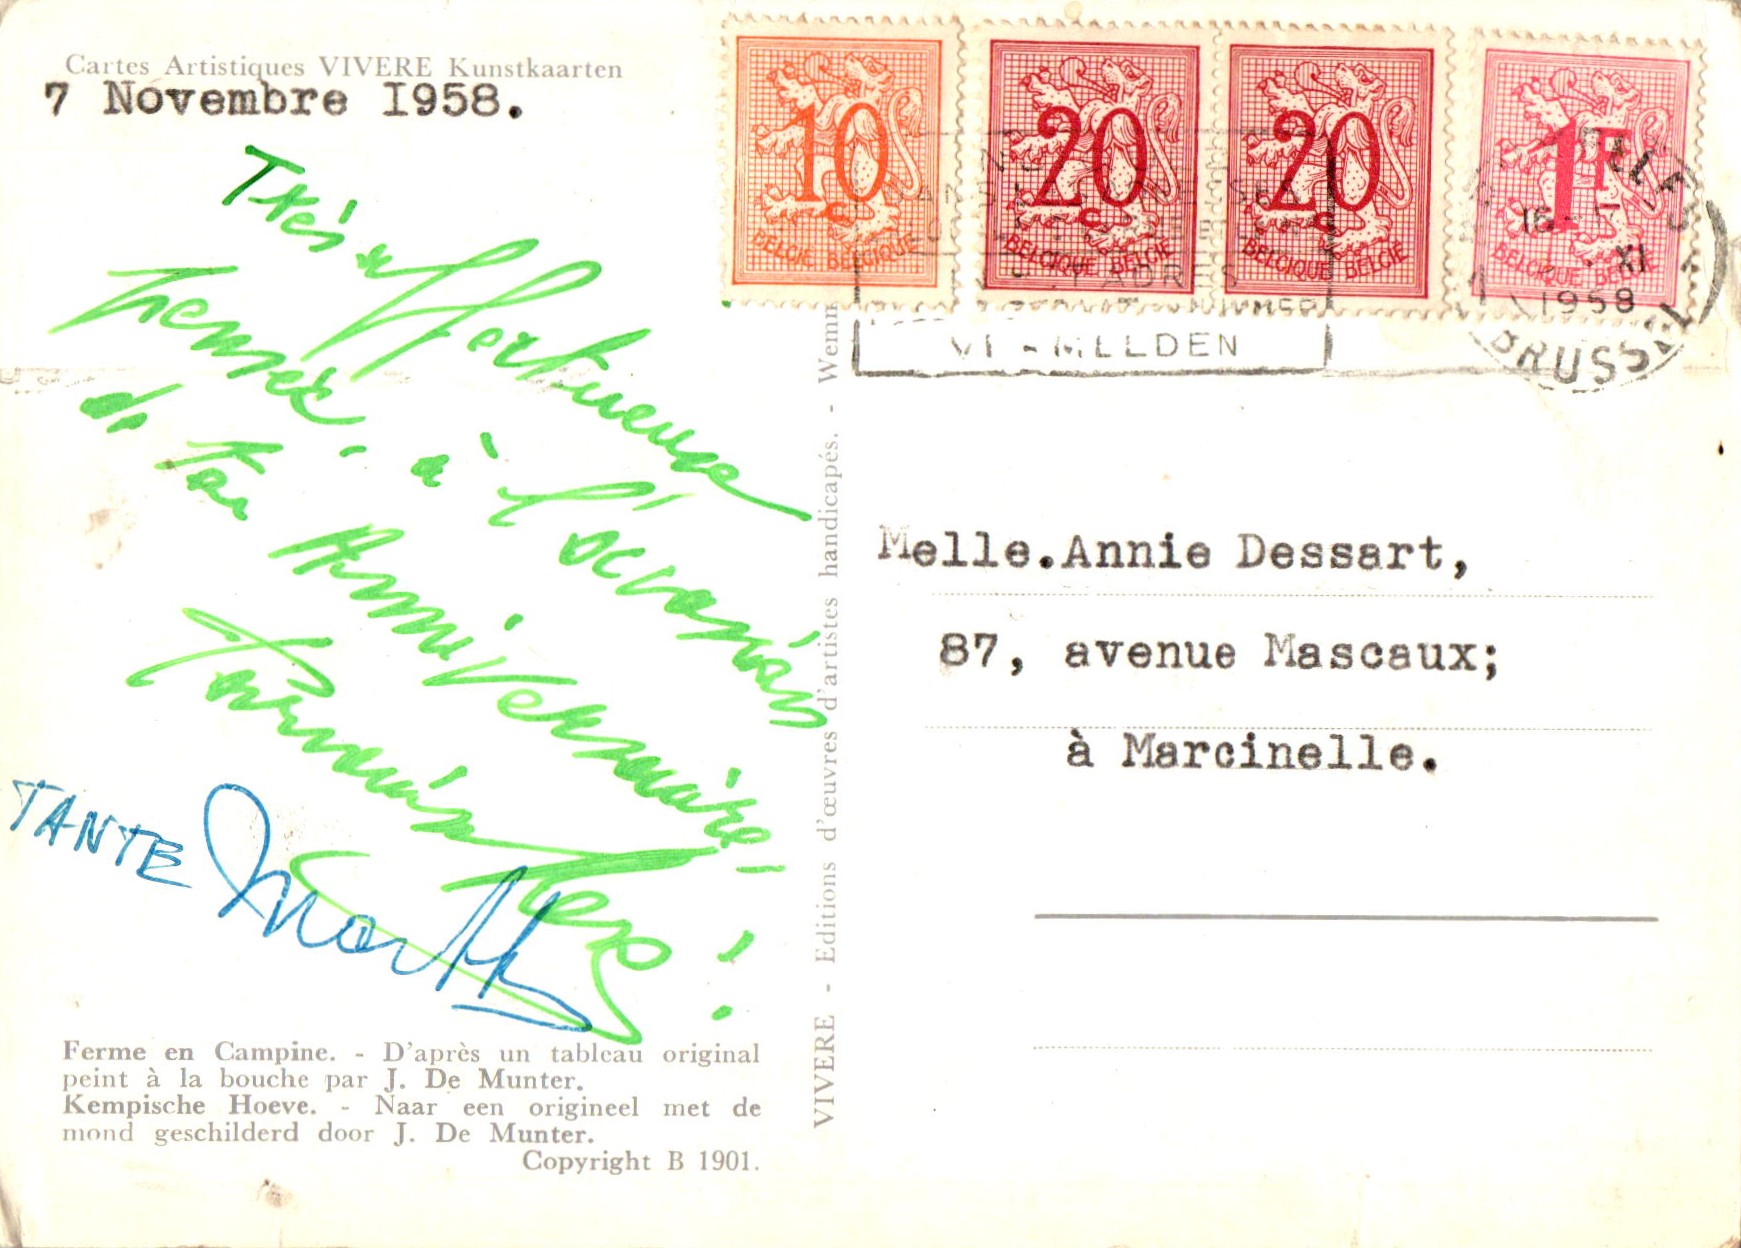 Cartes Artistiques VIVERE Kunstkaarten
7 Novembre 1958.
Très affectueuse
pensée, à l'occasion
de ton Anniversaire!
Parrain
TANTE Marth
Ferme en Campine. - D'après un tableau original
peint à la bouche par J. De Munter.
Kempische Hoeve. - Naar een origineel met de
mond geschilderd door J. De Munter.
Copyright B 1901.
VIVERE - Editions d'œuvres d'artistes handicapés. - Wemm
10 c
BELGIE BELGIQUE
20 c
BELGIQUE BELGIË
20 c
BELGIQUE BELGIË
1F
BELGIQUE BELGIE
ADRES
NUMMER
VERMELDEN
16
XI
1958
BRUSSEL
Melle.Annie Dessart,
87, avenue Mascaux;
à Marcinelle.